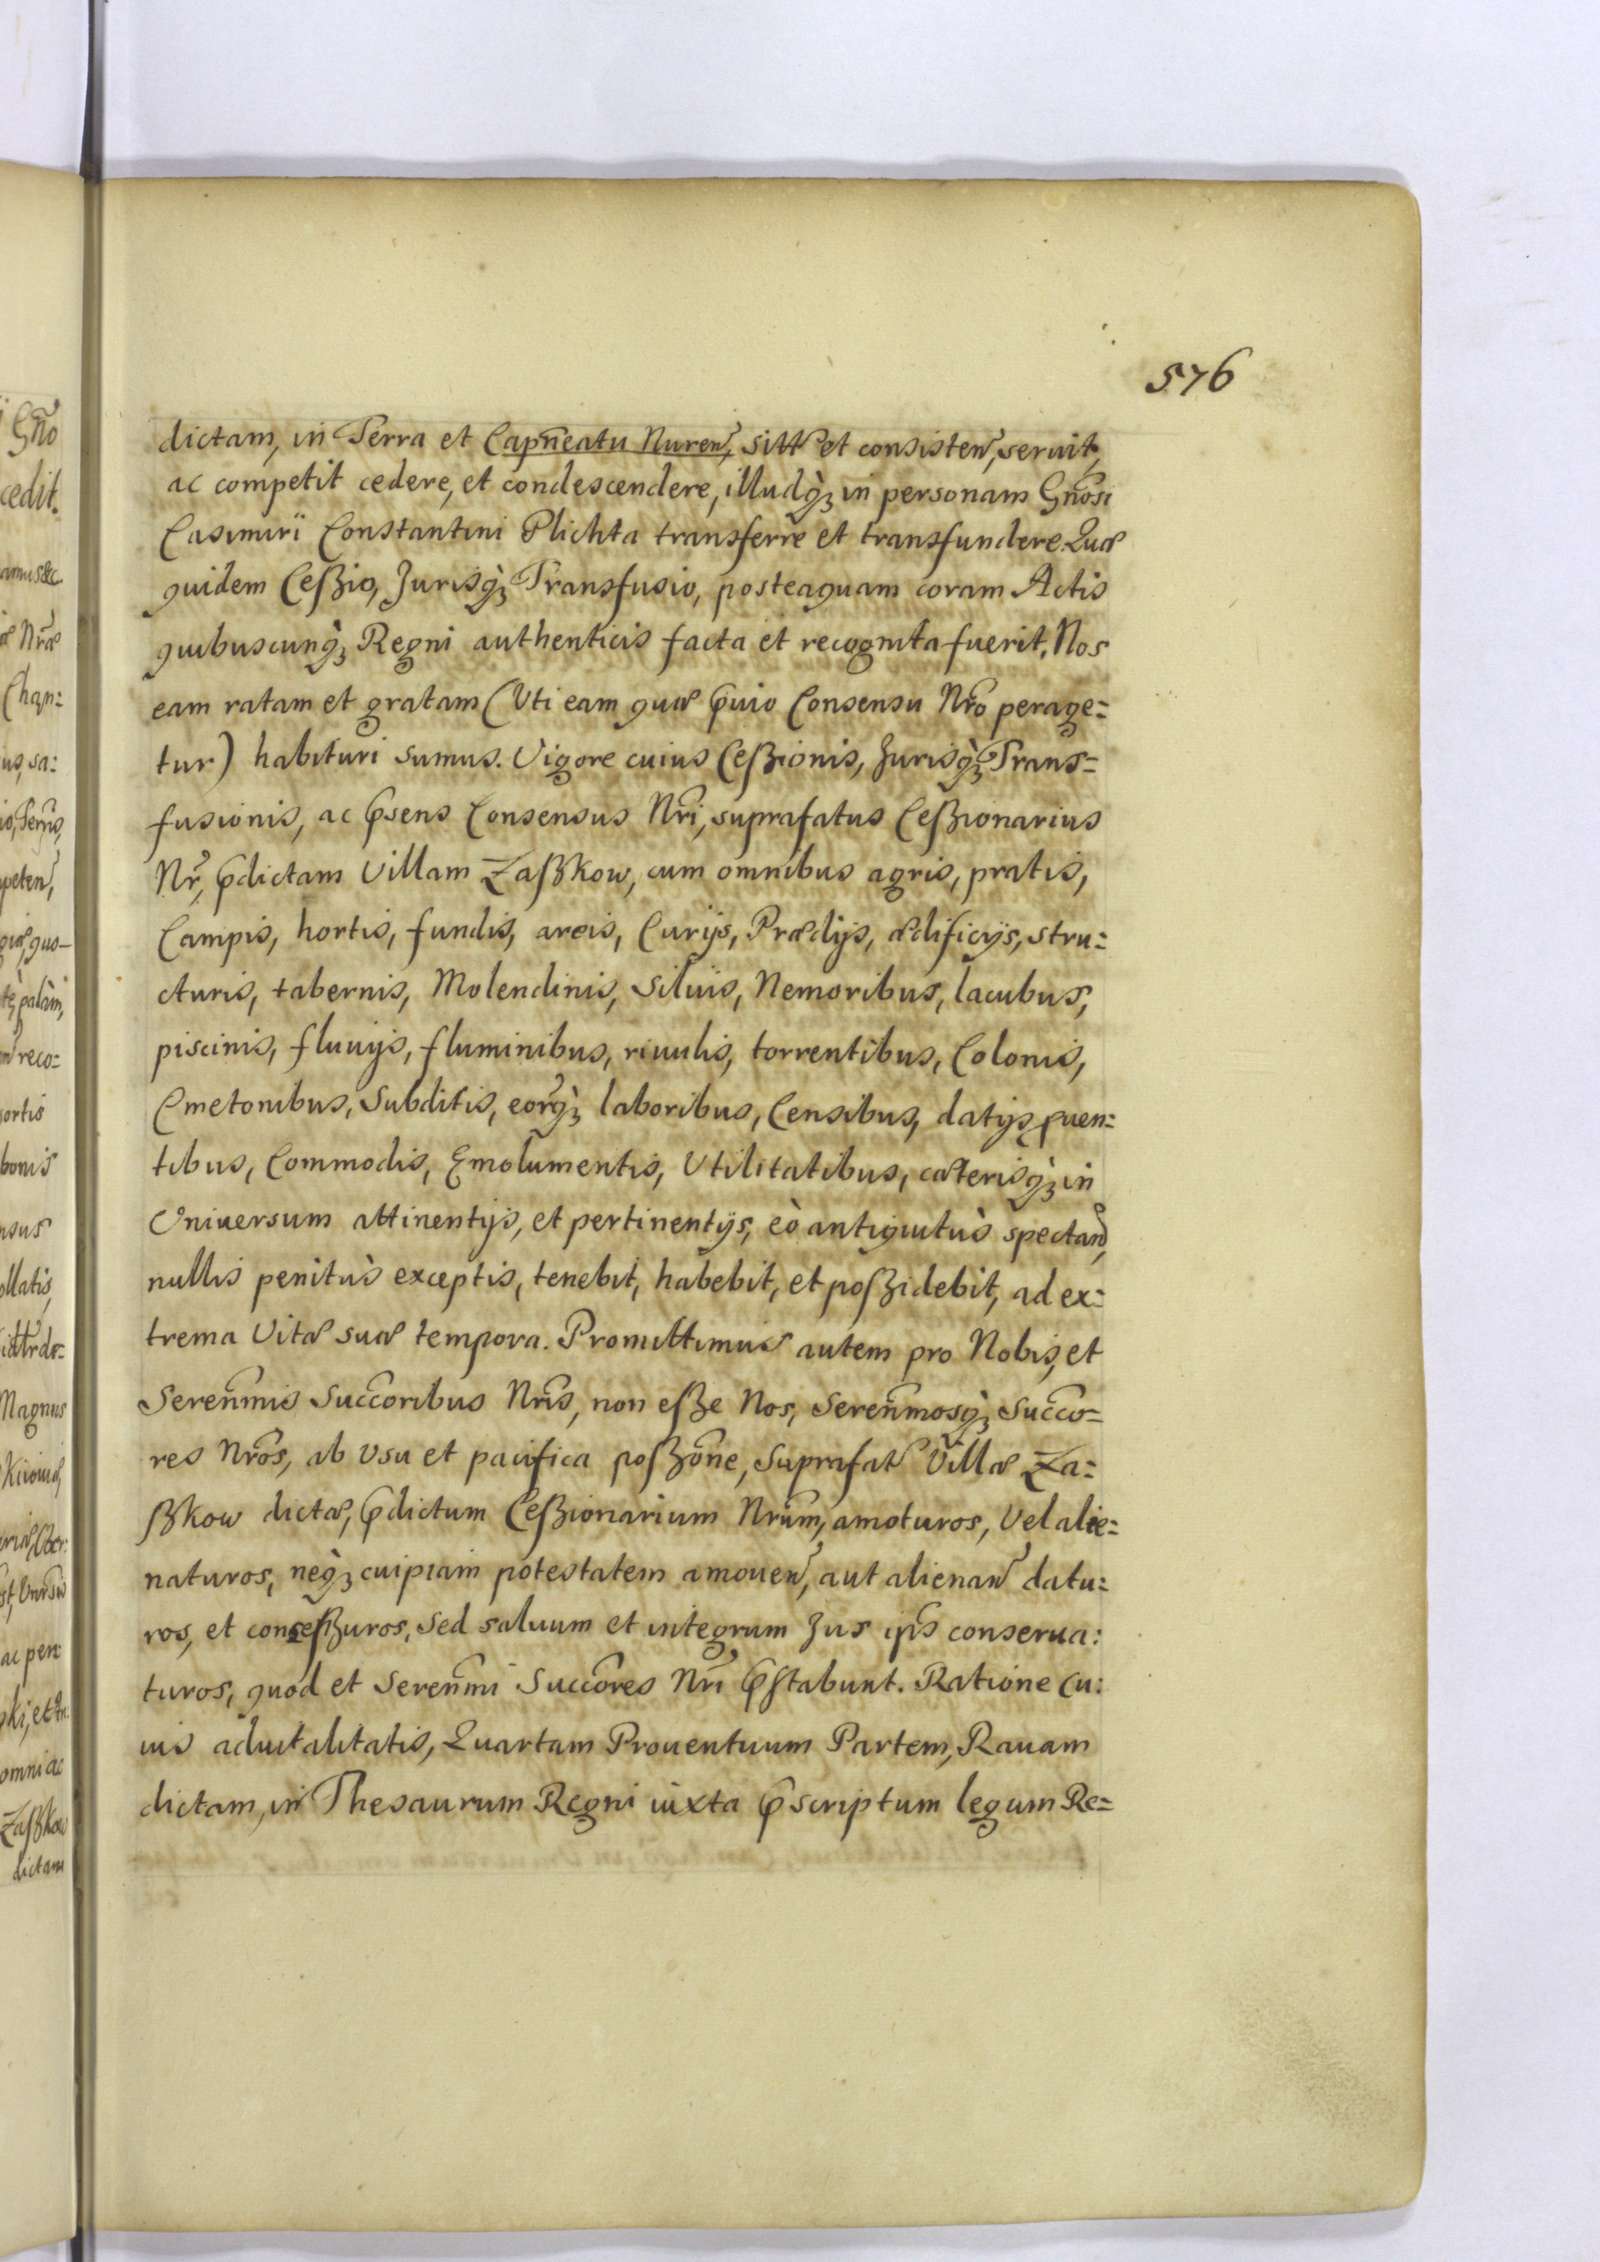 576
dictam, in Terra et Capn̄eatu Nuren̄, sittæ et consisten̄, seruit,
ac competit cedere, et condescendere, illudq̀ʒ in personam Gn̄osi
Casimiri Constantini Plichta transferre et transfundere. Quæ
quidem Ceßio, Jurisq̀ʒ Transfusio, posteaquam coram Actis
quibuscunq̀ʒ Regni authenticis facta et recognita fuerit, Nos
eam ratam et gratam (Uti eam quæ p̄uio Consensu Nr̄o perage=
tur) habituri sumus. Vigore cuius Ceßionis, Jurisq̀ʒ Trans=
fusionis, ac p̄sens Consensus Nr̄i, suprafatus Ceßionarius
Nr̄, p̄dictam Villam Zaßkow, cum omnibus agris, pratis,
Campis, hortis, fundis, areis, Curijs, Prædijs, ædificijs, stru=
cturis, tabernis, Molendinis, Siluis, Nemoribus, lacubus,
piscinis, fluuijs, fluminibus, riuulis, torrentibus, Colonis,
Cmetonibus, Subditis, eorq̀ʒ laboribus, Censibus, datijs, ꝓuen=
tibus, Commodis, Emolumentis, Utilitatibus, cæterisq̀ʒ in
Uniuersum attinentijs, et pertinentijs, eò antiquitùs spectan̄,
nullis penitùs exceptis, tenebit, habebit, et poßidebit, ad ex=
trema Vitæ suæ tempora. Promittimus autem pro Nobis, et
Seren̄mis Succ̄oribus Nr̄is, non eße Nos, Seren̄mosq̀ʒ Succo=
res Nr̄os, ab Usu et pacifica poßōne, Suprafatæ Villæ Za=
ßkow dictæ, p̄dictum Ceßionarium Nr̄um, amoturos, Vel alie=
naturos, neq̀ʒ cuipiam potestatem amouen̄, aut alienan̄ datu=
ros, et conceßuros, Sed saluum et integrum Jus ip̄is conserua:
turos, quod et Seren̄mi Succ̄ores Nr̄i p̄stabunt. Ratione Cu:
ius aduitalitatis, Quartam Prouentuum Partem, Rauam
dictam, in Thesaurum Regni iuxta p̄scriptum legum Re=